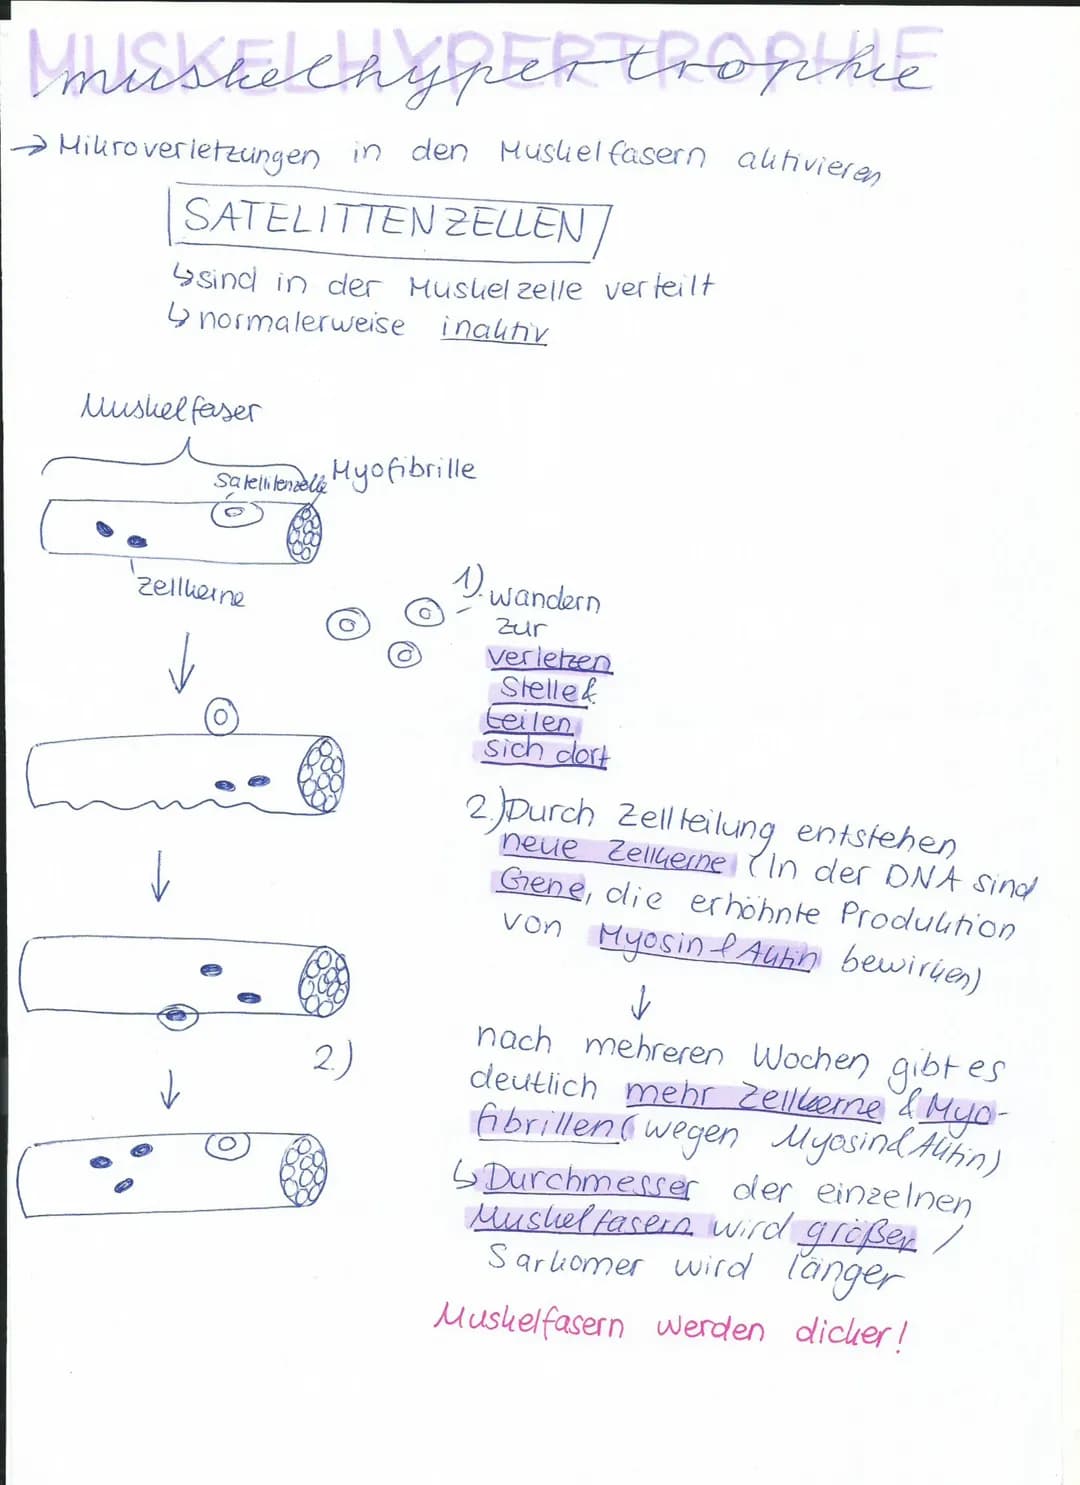 MUSKELHYPERTROPHIE
muskelhypertrophie
→ Mikroverletzungen in den Muskelfasern aktivieren
SATELITTENZELLEN
↳ sind in der Muskelzelle verteilt
↳ normalerweise inaktiv
Muskelfaser
Satellitenzelle
Myofibrille
Zellkerne
1). wandern
zur
verletzen
Stelle &
teilen
sich dort
2.) Durch Zellteilung entstehen
neue Zellkerne (In der DNA sind
Gene, die erhöhnte Produktion
von Myosin & Aktin bewirken)
↓
nach mehreren Wochen gibt es
deutlich mehr Zellkerne & Myo-
fibrillen (wegen Myosin & Aktin)
↳ Durchmesser der einzelnen
Muskelfasern wird größer /
Sarkomer wird länger
Muskelfasern werden dicker!
2.)